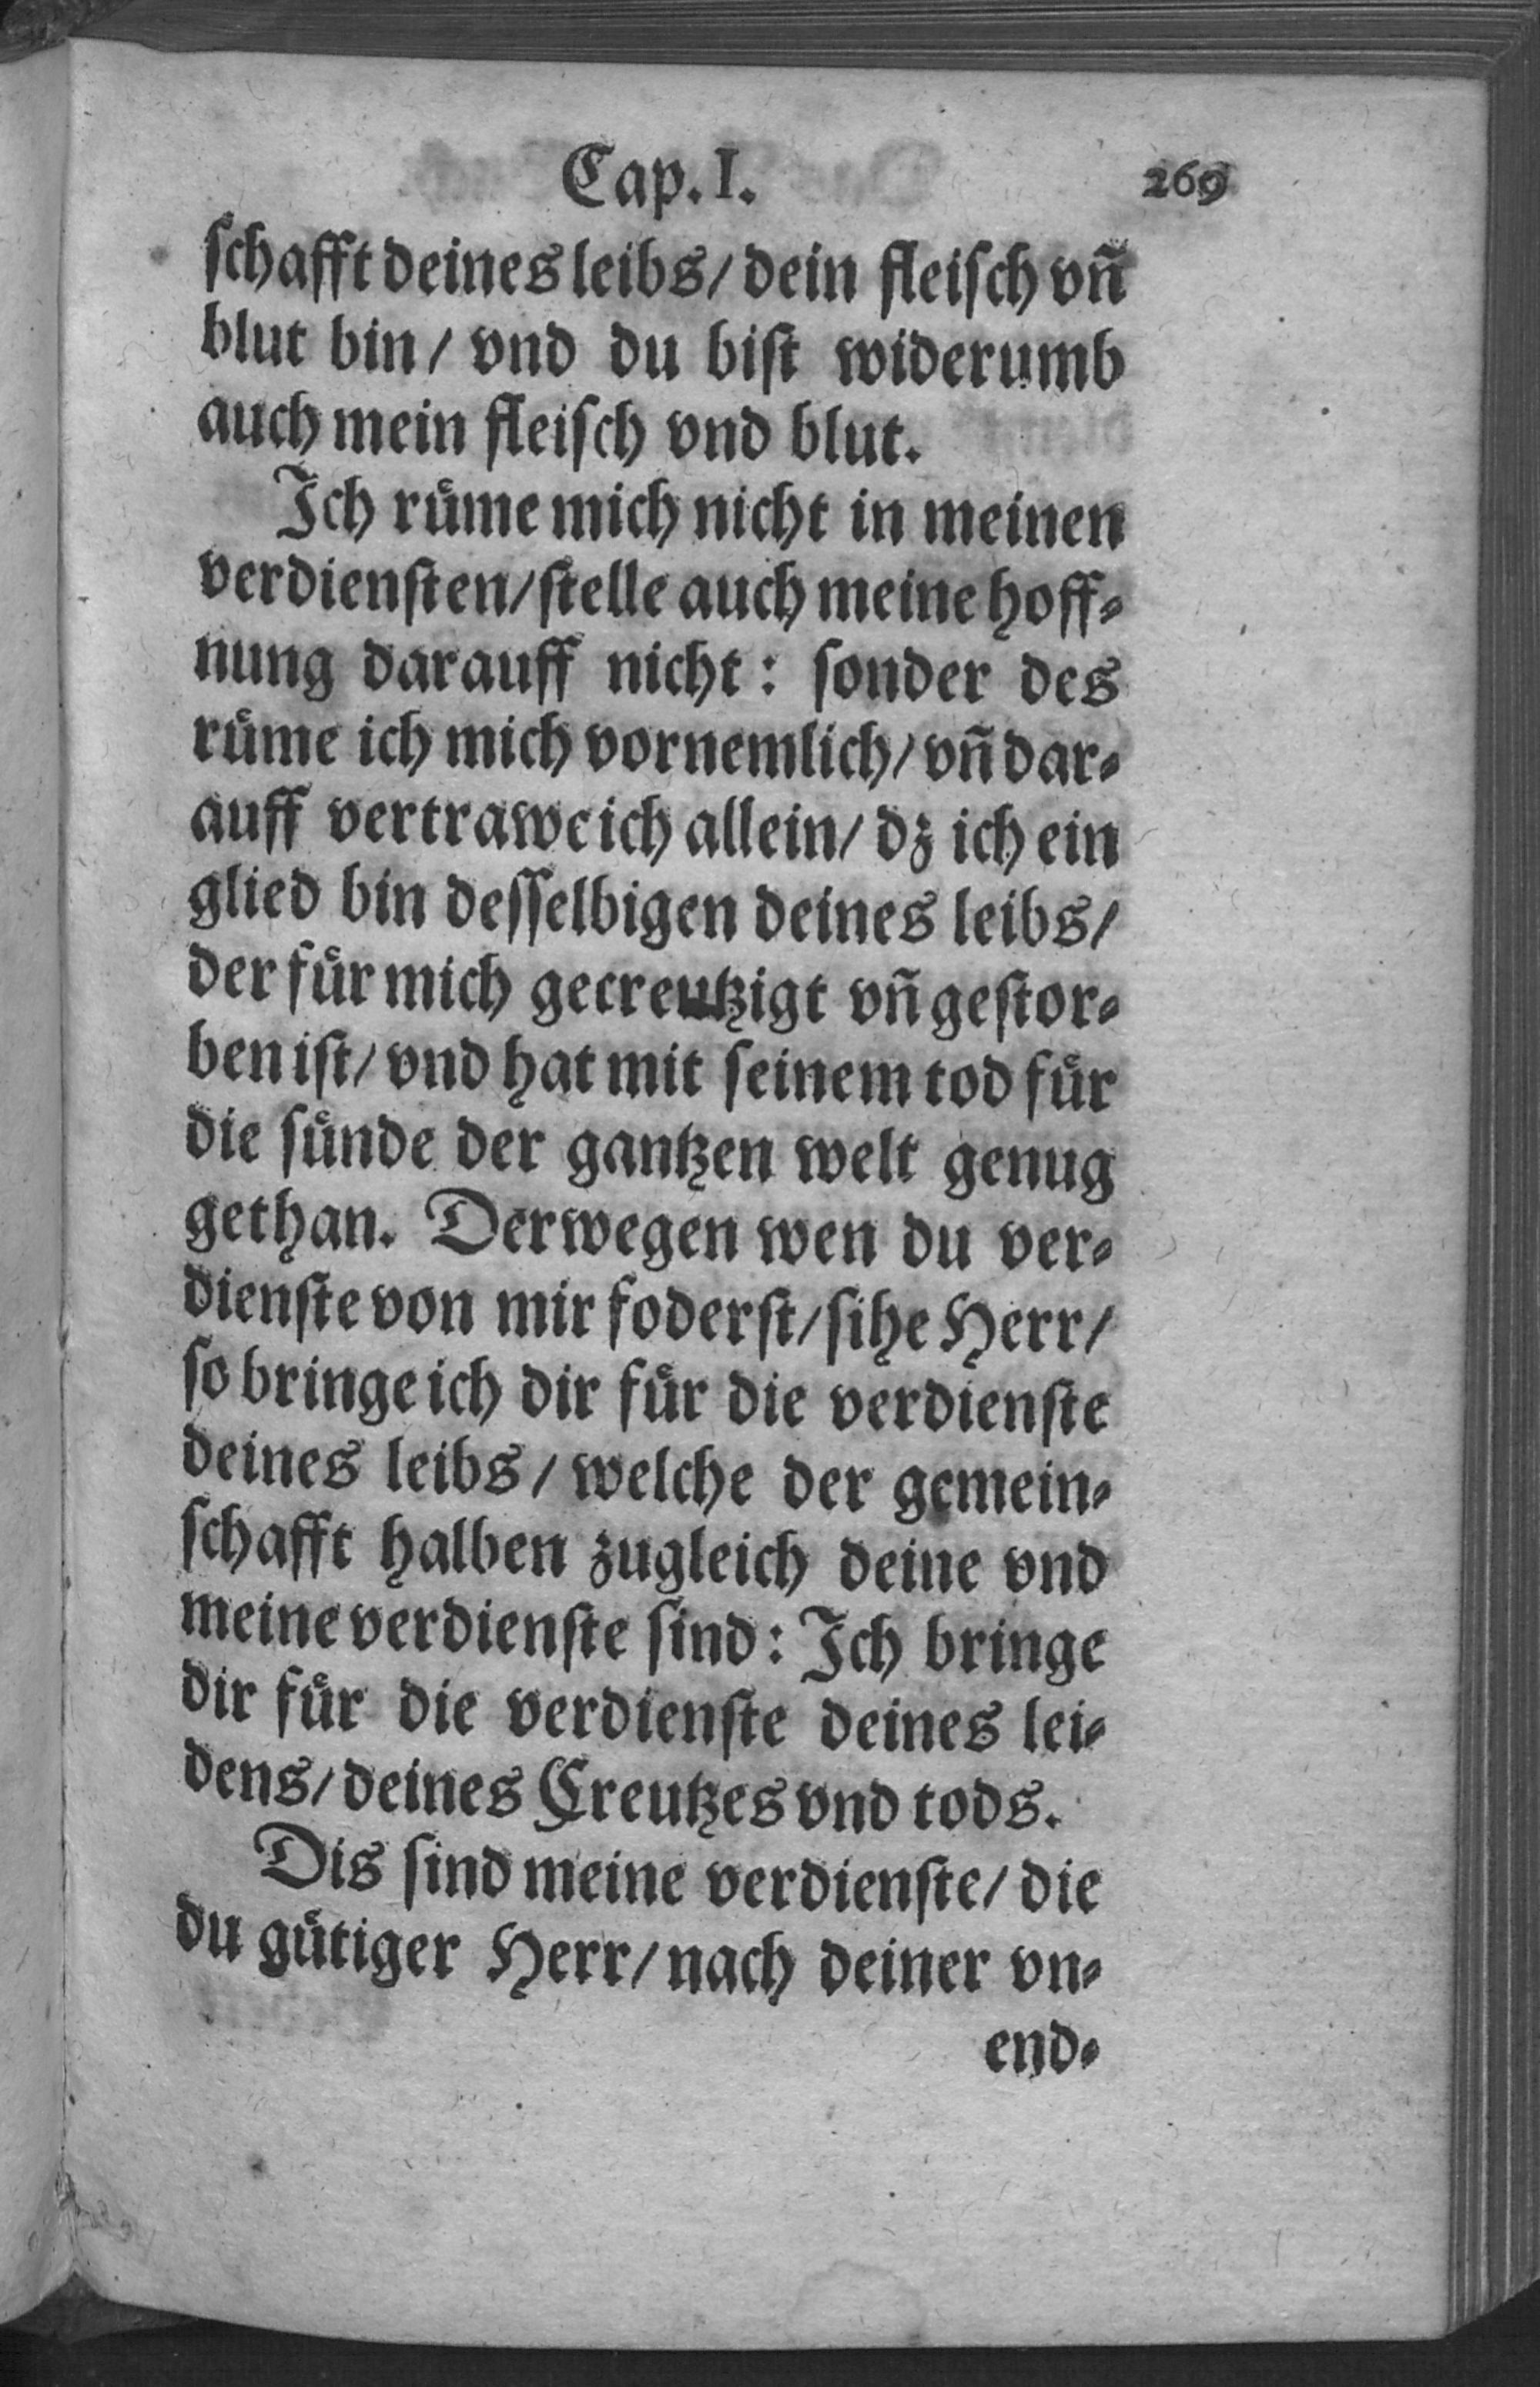 Cap. I. 269
ſchafft deines leibs/ dein fleiſch vñ
blut bin/ vnd du biſt widerumb
auch mein fleiſch vnd blut.
Ich ruͤme mich nicht in meinen
verdienſten/ ſtelle auch meine hoff⸗
nung darauff nicht: ſonder des
ruͤme ich mich vornemlich/ vñ dar⸗
auff vertrawe ich allein/ dz ich ein
glied bin deſſelbigen deines leibs/
der fuͤr mich gecreutzigt vñ geſtor⸗
ben iſt/ vnd hat mit ſeinem tod fuͤr
die ſuͤnde der gantzen welt genug
gethan. Derwegen wen du ver⸗
dienſte von mir foderſt/ ſihe Herr/
ſo bringe ich dir fuͤr die verdienſte
deines leibs/ welche der gemein⸗
ſchafft halben zugleich deine vnd
meine verdienſte ſind: Ich bringe
dir fuͤr die verdienſte deines lei⸗
dens/ deines Creutzes vnd tods.
Dis ſind meine verdienſte/ die
du guͤtiger Herr/ nach deiner vn⸗
end⸗